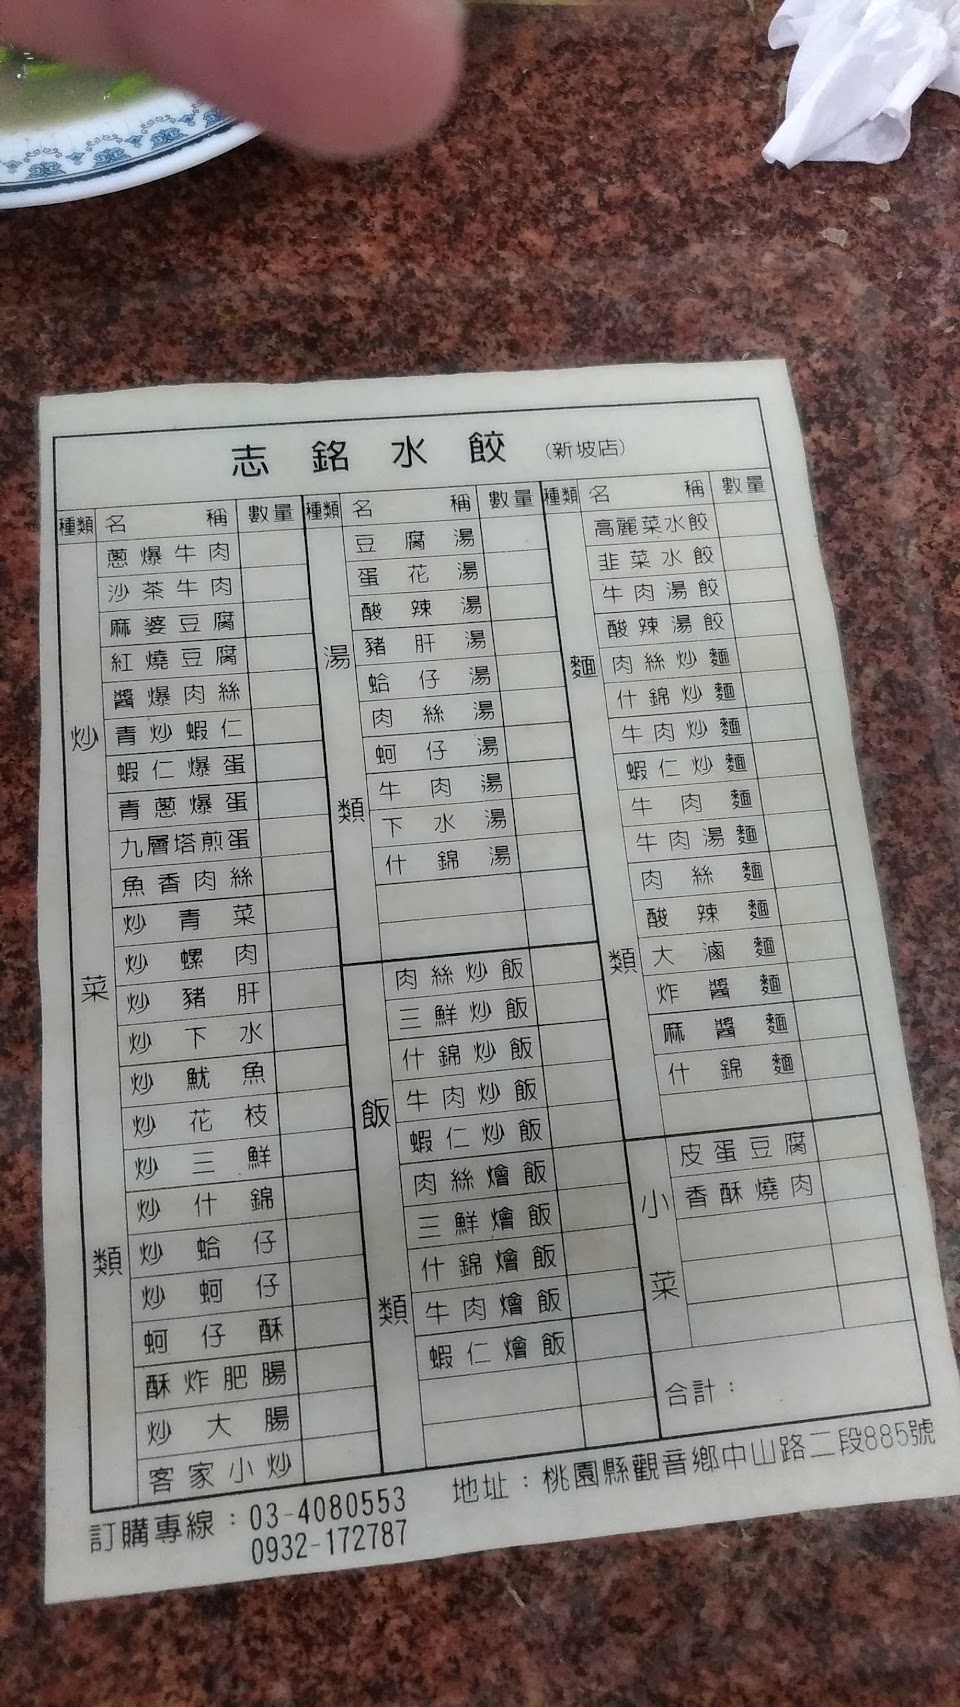 志銘水餃 (新坡店)
種類 名稱 數量
炒菜類
蔥爆牛肉
沙茶牛肉
麻婆豆腐
紅燒豆腐
醬爆肉絲
青炒蝦仁
蝦仁爆蛋
青蔥爆蛋
九層塔煎蛋
魚香肉絲
炒青菜
炒螺肉
炒豬肝
炒下水
炒魷魚
炒花枝
炒三鮮
炒什錦
炒蛤仔
炒蚵仔
蚵仔酥
酥炸肥腸
炒大腸
客家小炒
種類 名稱 數量
湯類
豆腐湯
蛋花湯
酸辣湯
豬肝湯
蛤仔湯
肉絲湯
蚵仔湯
牛肉湯
下水湯
什錦湯
飯類
肉絲炒飯
三鮮炒飯
什錦炒飯
牛肉炒飯
蝦仁炒飯
肉絲燴飯
三鮮燴飯
什錦燴飯
牛肉燴飯
蝦仁燴飯
種類 名稱 數量
麵類
高麗菜水餃
韭菜水餃
牛肉湯餃
酸辣湯餃
肉絲炒麵
什錦炒麵
牛肉炒麵
蝦仁炒麵
牛肉麵
牛肉湯麵
肉絲麵
酸辣麵
大滷麵
炸醬麵
麻醬麵
什錦麵
小菜
皮蛋豆腐
香酥燒肉
合計：
訂購專線：03-4080553
0932-172787
地址：桃園縣觀音鄉中山路二段885號